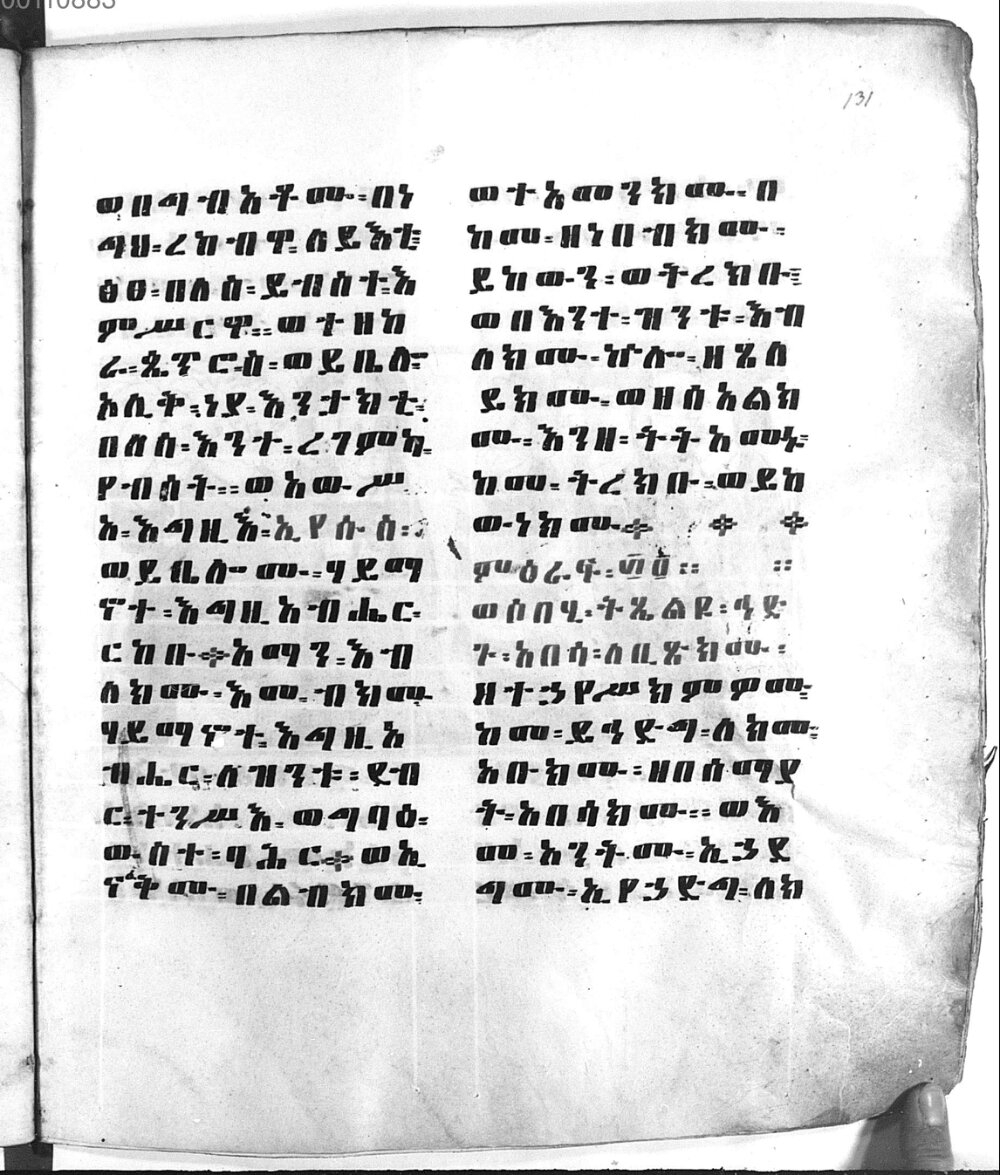 ወበግብአቶሙ፡በነ
ግህ፡ረከብዋ፡ለይእቲ፡
ዕፀ፡በለስ፡ይብስተ፡እ
ምሥርዋ። ወተዘከ
ረ፡ጴጥሮስ፡ወይቤሎ፡
ኦሊቅ፡ነያ፡እንታክቲ፡
በለስ፡እንተ፡ረገምካ፡
የብሰት። ወአውሥ
አ፡እግዚእ፡ኢየሱስ፡
ወይቤሎሙ፡ሃይማ
ኖተ፡እግዚአብሔር፡
ርከቡ፨አማን፡እብ
ለክሙ፡እመ፡ብክሙ
ሃይማኖተ፡እግዚአ
ብሔር፡ለዝንቱ፡ደብ
ር፡ተንሥእ፡ወግባዕ፡
ውስተ፡ባሕር፨ወኢ
በልብክሙ፡
ወተአመንክሙ፡በ
ከመ፡ዘነበብክሙ፡
ይከውን፡ወትረክቡ፡
ወበእንተ፡ዝንቱ፡እብ
ለክሙ፡ኵሎ፡ዘጼለ
ይክሙ፡ወዘሰአልክ
ሙ፡እንዘ፡ትትአመኑ፡
ከመ፡ትረክቡ፡ወይከ
ውነክሙ፨ ፨ ፨
ምዕራፍ፡፴፬ ። ።
ወሶበሂ፡ትጼልዩ፡ኅድ
ጉ፡አበሳ፡ለቢጽክሙ፡
ዘተኃየሥክምዎሙ፡
ከመ፡ይኅድግ፡ለክሙ፡
አቡክሙ፡ዘበሰማያ
ት፡አበሳክሙ። ወእ
መ፡አንትሙ፡ኢኃደ
ግሙ፡ኢየኃድግ፡ለክ
131